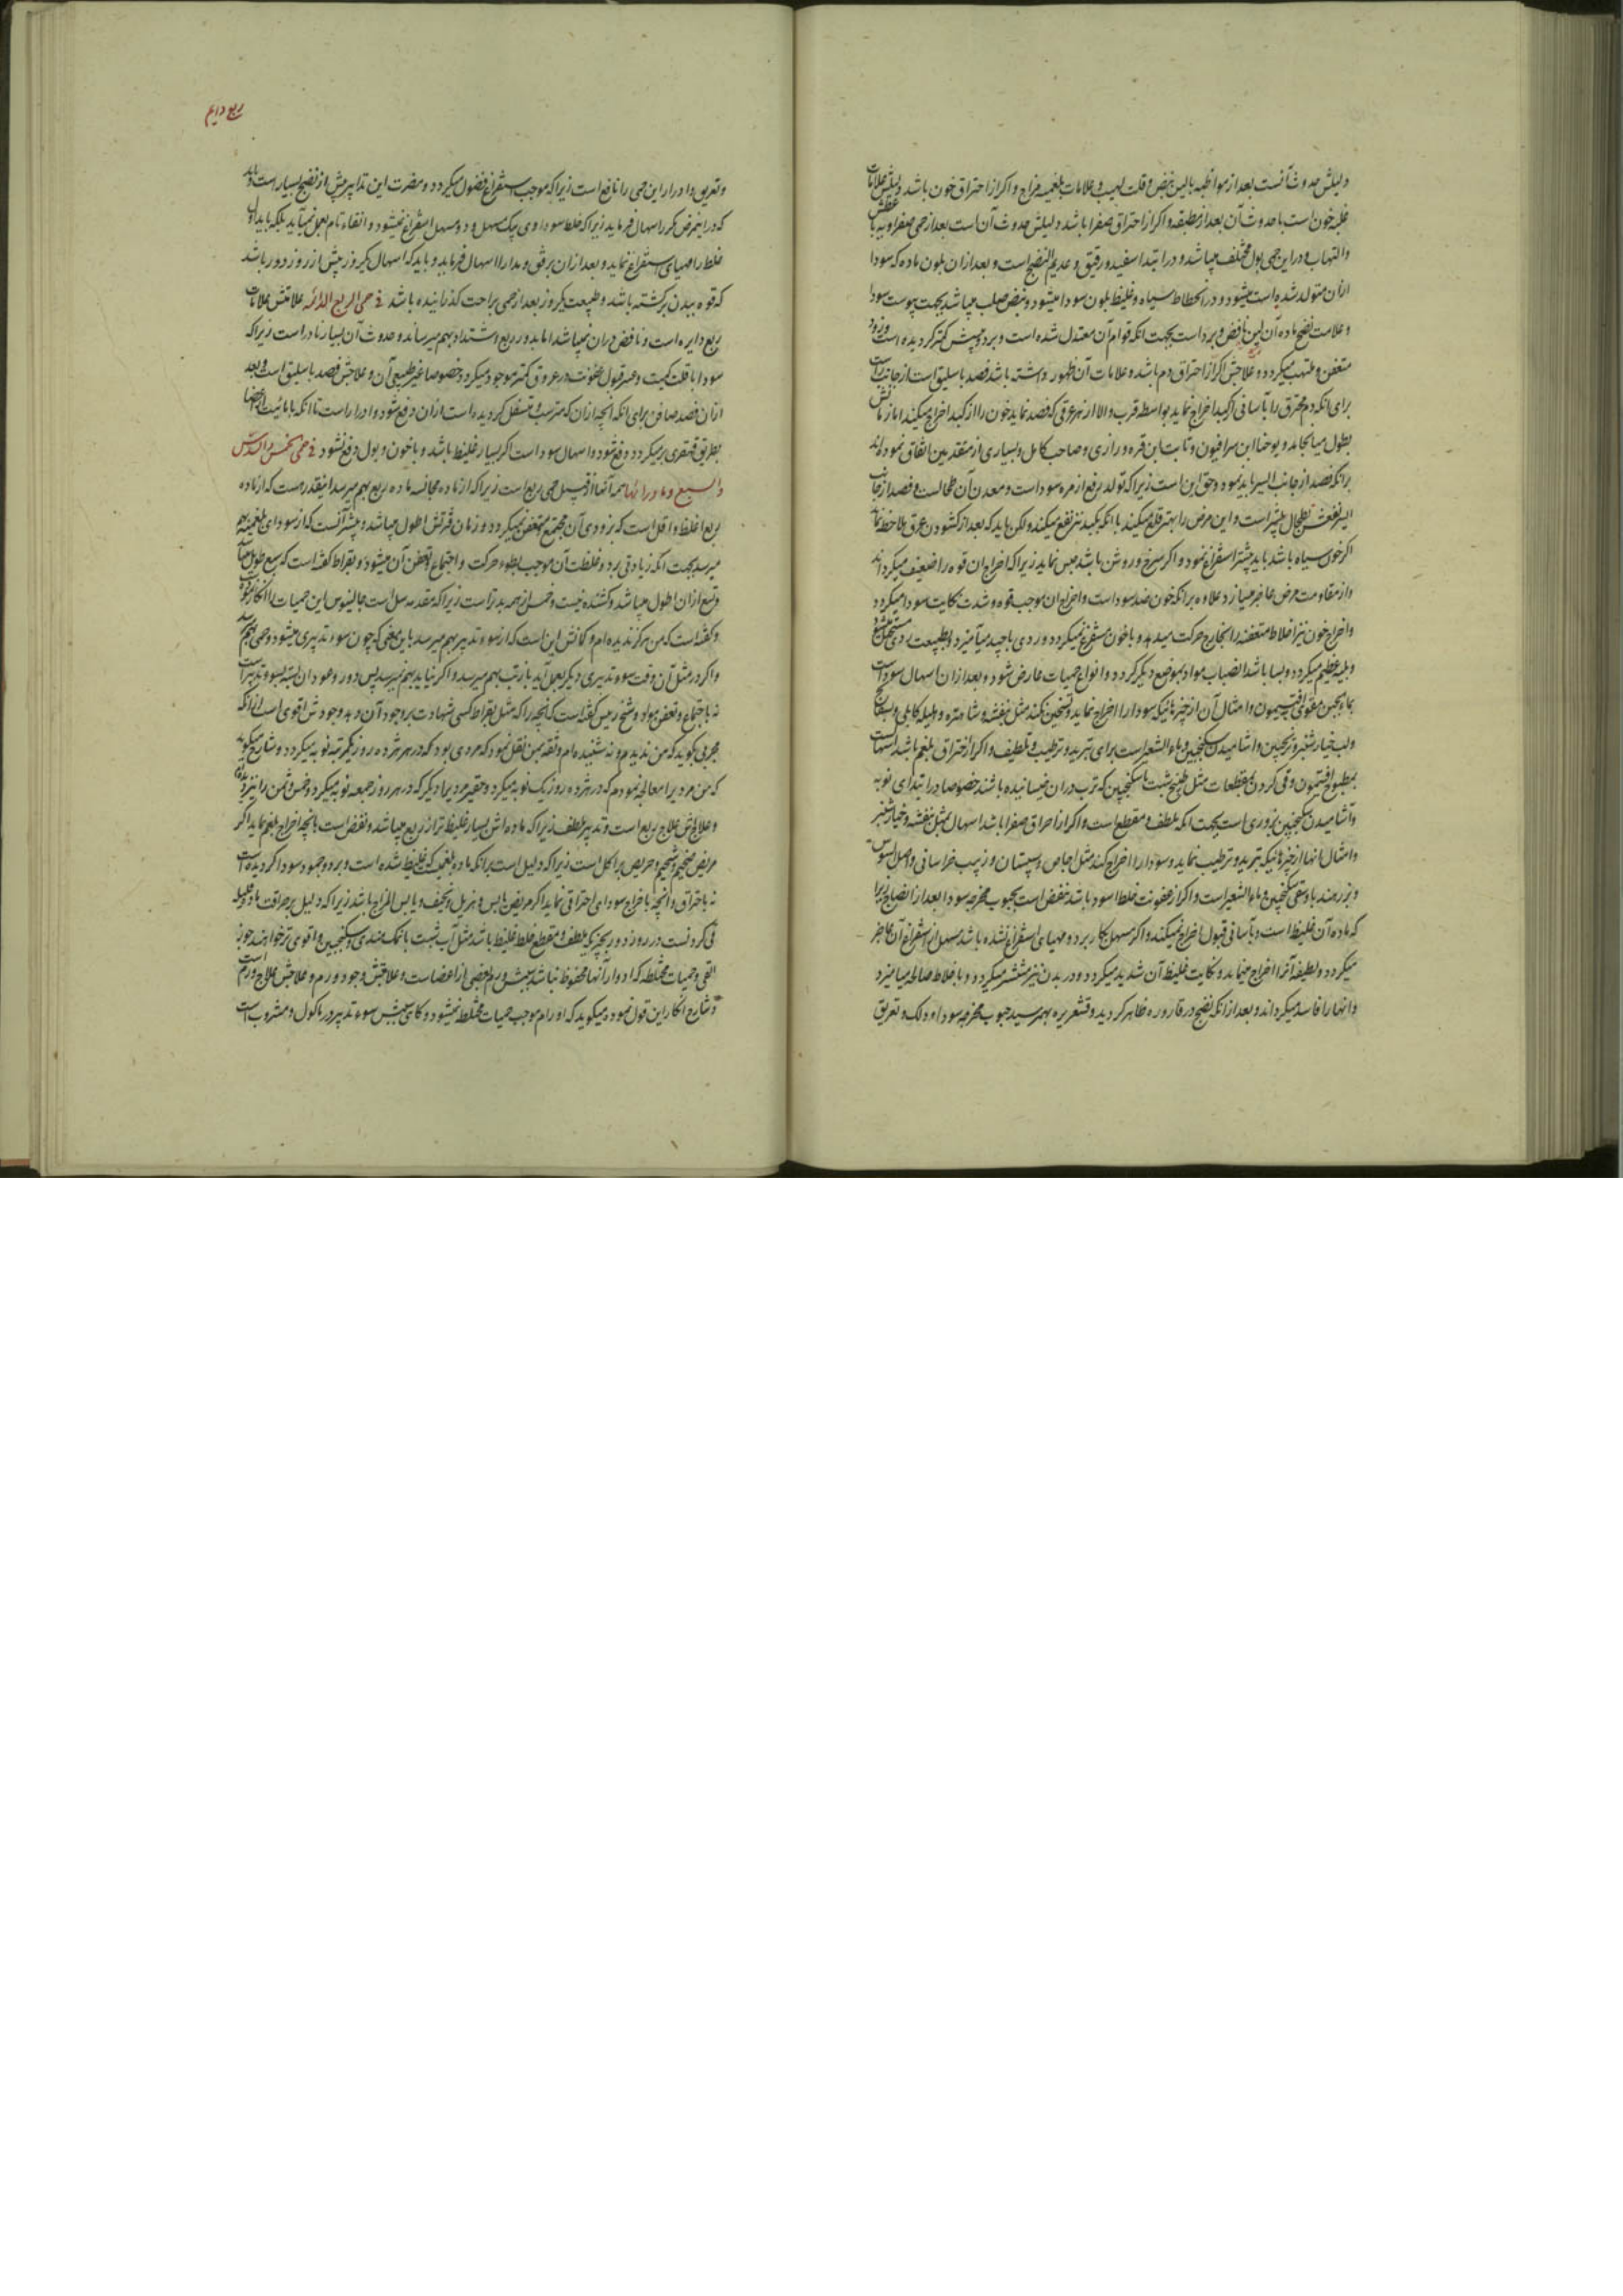 دلیلش حدوث آنست بعد از مواظبه بالین نبض و قلت لهیب و علامات بلغمیه مزاج و اگر از احتراق خون باشد دلیلش علامات
غلبه خون است با حدوث آن بعد از مطبقه و اگر از احتراق صفرا باشد دلیلش حدوث آن است بعد از حمی صفراویه با عطش
والتهاب و در این حمی بول مختلف میباشد و در ابتدا سفید و رقیق و عدیم النضج است و بعد از ان بلون ماده که سودا
ازان متولد شده است میشود و در انحطاط سیاه و غلیظ بلون سودا میشود و نبض صلب میباشد بجهت یبوست سودا
و علامت نضج ماده آن لین نافض و برد است بجهت انکه قوام آن معتدل شده است و برد و یبسش کمتر کردیده است و زود
متعفن و ملتهب میکردد و علاجش اگر از احتراق دم باشد و علامات آن ظهور داشته باشد فصد باسلیق است از جانب راست
برای انکه دم محترق را بآسانی از کبد اخراج نماید بواسطه قرب والا از هر عرقی که فصد نماید خون را از کبد اخراج میکند اما زمانش
بطول میانجامد و یوحنا ابن سرافیون و ثابت ابن قره و رازی و صاحب کامل و بسیاری از متقدمین اتفاق نموده‌اند
برانکه فصد از جانب ایسر باید نمود و حق این است زیرا که تولد ربع از مره سودا است و معدن آن طحالست و فصد از جانب
ایسر نفعش بطحال بیشتر است و این مرض را بهتر قلع میکند با انکه بکبد نیز نفع میکند ولکن باید که بعد از کشودن عرق ملاحظه نماید
اگر خون سیاه باشد باید بیشتر استفراغ نمود و اگر سرخ و روشن باشد حبس نماید زیرا که اخراج ان قوه را ضعیف میکرداند
و از مقاومت مرض عاجز میسازد علاوه برانکه خون ضد سودا است و اخراج ان موجب قوه و شدت نکایت سودا میکردد
و اخراج خون نیز اخلاط متعفنه را بخارج حرکت میدهد و با خون مستفرغ نمیکردد و
و بلیه عظیم میکردد و بسا باشد انصباب مواد بموضع دیکر کردد و انواع حمیات عارض شود و بعد از ان اسهال سودا است
بماء الجبن مقوی بافتیمون و امثال آن از چیزهائیکه سودا را اخراج نماید و تسخین نکند مثل بنفشه و شاهتره و هلیله کابلی و
ولب خیار شنبر و ترنجبین و اشامیدن سکنجبین و ماء الشعیر است برای تبرید و ترطیب و تلطیف و اگر از احتراق بلغم باشد اسهالست
بمطبوخ افتیمون و قی کردن بمقطعات مثل طبیخ شبت با سکنجبین که ترب در ان خیسانیده باشند خصوصا در ابتدای نوبه
و آشامیدن سکنجبین بزوری است بجهت انکه ملطف و مقطع است و اگر از احراق صفرا باشد اسهال بمثل بنفشه و خیار شنبر
و امثال انها از چیزهائیکه تبرید و ترطیب نماید و سودا را اخراج کند مثل اجاص و سپستان و زبیب خراسانی و اصل السوس
و بزر هندبا و سقی سکنجبین و ماء الشعیر است و اگر از عفونت خلط اسود باشد نفض است بحبوب مخرجه سودا بعد از انضاج زیرا
که ماده آن غلیظ است و بآسانی قبول اخراج نمیکند و اگر مسهل بکار برد و مهیای استفراغ نشده باشد مسهل از استفراغ آن عاجز
میکردد و لطیفه آنرا اخراج مینماید و نکایت غلیظ آن شدید میکردد و در بدن نیز منتشر میکردد و با خلاط صالحه میامیزد
و انها را فاسد میکرداند و بعد از انکه نضج در قاروره ظاهر کردید و قشعریره بهمرسید حبوب مخرجه سودا و دلک و تعریق
ربع دایم
و تعریق و ادرار این حمی را نافع است زیرا که موجب استفراغ فضول میکردد و مضرت این تدابیر پیش از نضج بسیار است و باید
که در اینمرض مکرر اسهال فرماید زیرا که خلط سوداوی بیک مسهل و دو مسهل استفراغ نمیشود و انقاء تام بعمل نمیآید بلکه باید اول
خلط را مهیای استفراغ نماید و بعد از ان برفق و مدارا اسهال فرماید و باید که اسهال یکروز پیش از روز دور باشد
که قوه ببدن برکشته باشد و طبیعت یکروز بعد از حمی براحت کذرانیده باشد فی حمی الربع الدائره علامتش علامات
ربع دایره است و نافض دران نمیباشد اما بدور ربع اشتداد بهم میرساند و حدوث آن بسیار نادر است زیرا که
سودا با قلت کمیت و عسر قبول عفونت در عروق کمتر موجود میکردد خصوصا غیر طبیعی آن و علاجش فصد باسلیق است و بعد
ازان فصد صافن برای انکه انچه ازان که مترسب و متسفل کردیده است ازان دفع شود و ادرار است تا انکه با مائیت
بطریق قهقری برمیکردد دفع شود و اسهال سودا است اگر بسیار غلیظ باشد و با خون و بول دفع نشود فی حمی الخمس و السدس
و السبع و ما وراءها همه آنها از قبیل حمی ربع است زیرا که از ماده مجانسه ماده ربع بهم میرسد اینقدر هست که از ماده
ربع اغلظ و اقل است که بزودی آن مجتمع و متعفن نمیکردد و زمان فترتش اطول میباشد و بیشتر آنست که از سودای بلغمیه بهم
میرسد بجهت انکه زیادتی برد و غلظت آن موجب بطوء حرکت و اجتماع و تعفن آن میشود و بقراط کفته است که سبع طویل میباشد
و تسع ازان اطول میباشد و کشنده نیست و خمس از همه بدتر است زیرا که مقدمه سل است جالینوس این حمیات را انکار نموده
و کفته است که من هرکز ندیده‌ام و کمانش این است که از سوء تدبیر بهم میرسد باین معنی که چون سوء تدبیری میشود و حمی بهم میرسد
و اگر در مثل آن وقت سوء تدبیری دیکر بعمل آید باز تب بهم میرسد و اگر نیاید بهم نمیرسد پس دور و عود ان بسبب سوء تدبیر است
نه باجتماع و تعفن مواد و شیخ رییس کفته است که انچه را که مثل بقراط کسی شهادت بر وجود آن دهد وجودش اقوی است از انکه
مجربی بکوید که من ندیدم و نه شنیده‌ام و ثقه بمن نقل نمود که مردی بود که در هر هژده روز یکمرتبه نوبه میکردد و شارح میکوید
که من مردیرا معالجه نمودم که در هژده روز یک نوبه میکرد و حقیر مردیرا دیکر که در هر روز جمعه نوبه میکرد و خمس و ثمن را نیز دیده‌ام
و علاج ش علاج ربع است و تدبیر ملطف زیرا که ماده اش بسیار غلیظ تر از ربع میباشد و نفض است بانچه اخراج بلغم نماید اگر
مریض ضخیم و شحیم و حریص بر اکل است زیرا که دلیل است برانکه ماده بلغمی است که غلیظ شده است و ببرد و جمود سودا کردیده است
نه باحتراق و انچه با خراج سودای احتراقی نماید اگر مریض یابس و هزیل و نحیف و یابس المزاج باشد زیرا که دلیل بر حراقت ماده
قی کردنست در روز دور بچیزیکه ملطف و مقطع خلط غلیظ باشد مثل آب شبت با نمک هندی و سکنجبین و اقوی تر خواهند جوز
القی و حمیات مختلطه که ادوار آنها محفوظ نباشد سببش ورم بعضی از اعضا است و علامتش وجود ورم و علاجش علاج ورم است
و شارح انکار این قول نموده میکوید که اورام موجب حمیات مختلطه نمیشود و کاهی سببش سوء تدبیر در ماکول و مشروب است